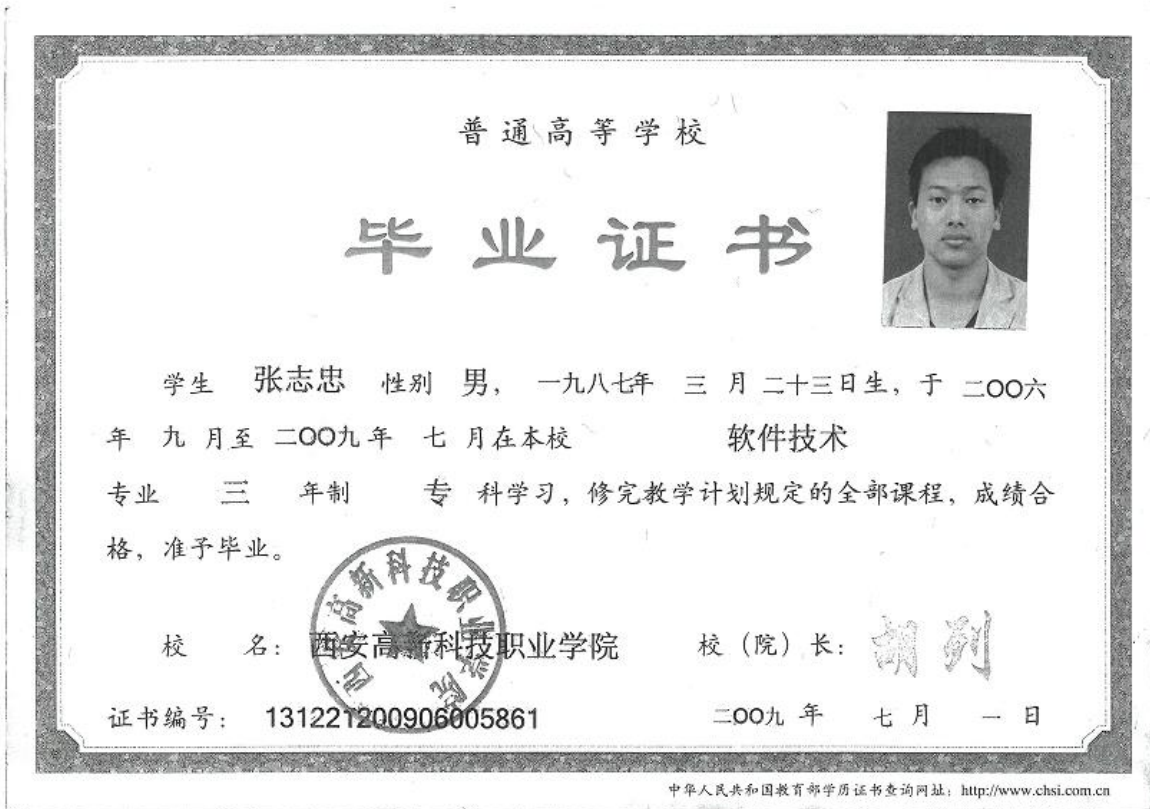 普通高等学校
毕业证书
学生 张志忠 性别 男， 一九八七年 三 月 二十三日生，于 二〇〇六
年 九 月至 二〇〇九年 七 月在本校 软件技术
专业 三 年制 专 科学习，修完教学计划规定的全部课程，成绩合
格，准予毕业。
西安高新科技职业学院
校 名： 西安高新科技职业学院 校（院）长：
证书编号： 131221200906005861 二〇〇九 年 七 月 一 日
中华人民共和国教育部学历证书查询网址：http://www.chsi.com.cn